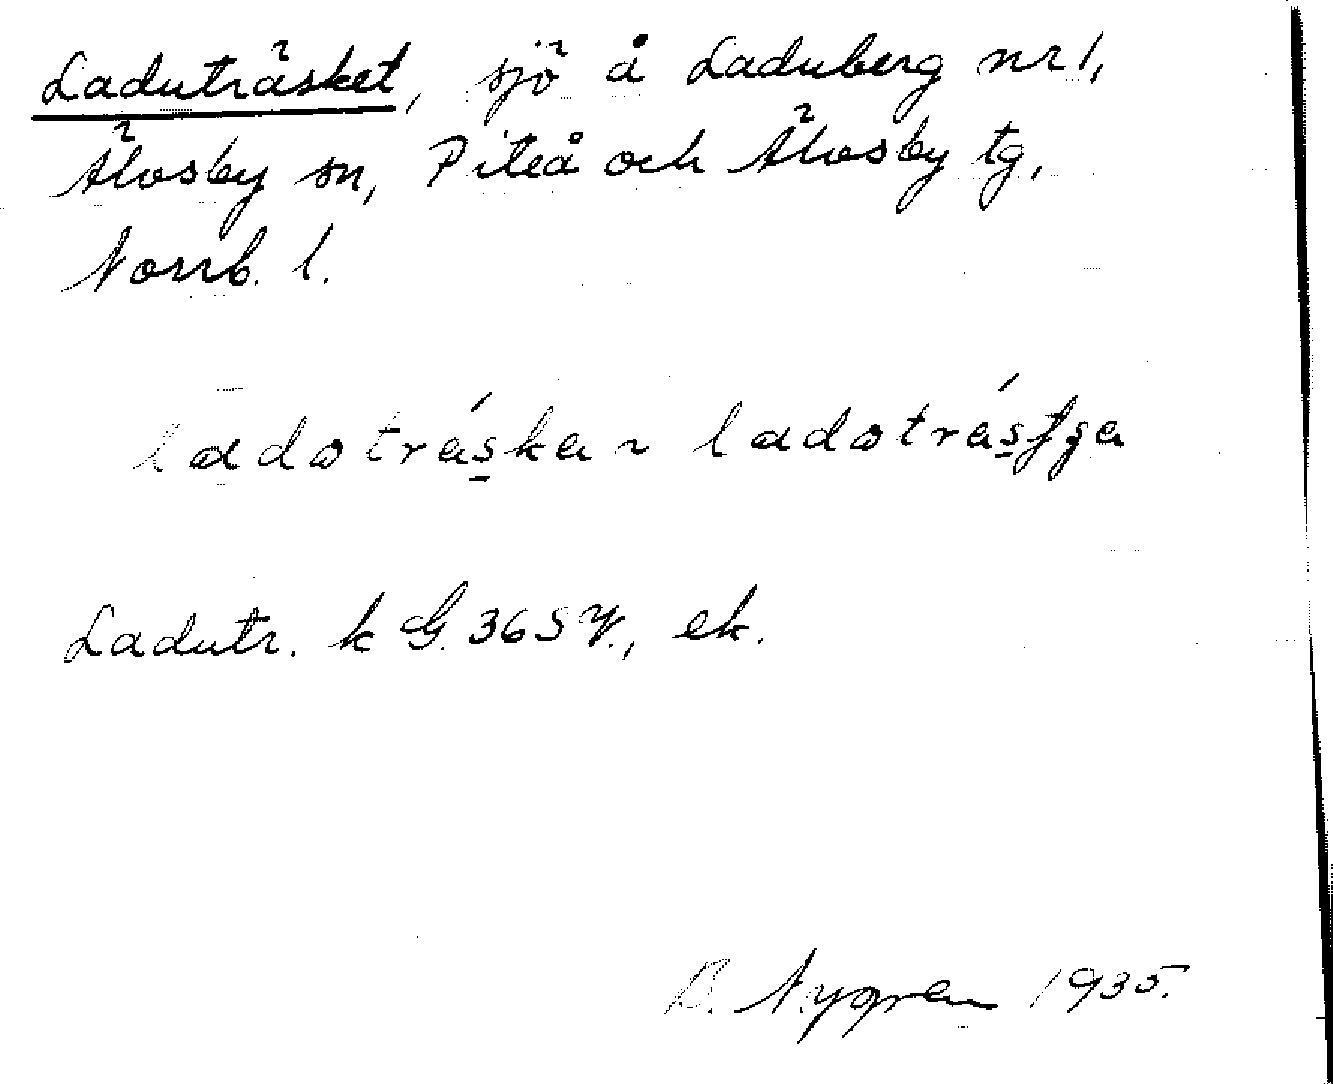 Laduträsket, sjö å Laduberg nr 1,
Älvsby sn, Piteå och Älvsby tg,
Norrb. l.
ladoträ́ska ~ ladoträ́sʃʒa
Ladutr. k G. 365 V., ek.
Nygren 1935.